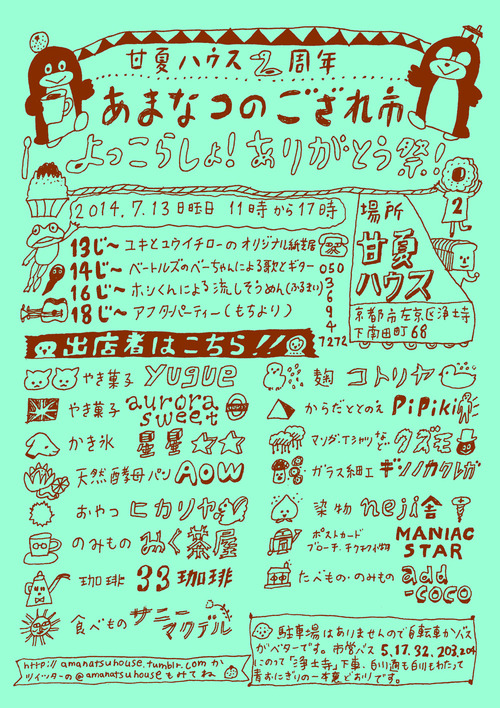 甘夏ハウス2周年
あまなつのござれ市
よっこらしょ!ありがとう祭!
2014.7.13日曜日 11時から17時
13じ〜ユキとユウイチローのオリジナル紙芝居
14じ〜ベートルズのべーちゃんによる歌とギター
16じ〜ホシくんによる流しそうめん(ふるまい)
18じ〜アフターパーティー(もちより)
場所
甘夏
ハウス
京都市左京区浄土寺
下南田町68
050
3
6
9
4
7272
出店者はこちら!!
やき菓子 yugue
やき菓子 aurora
sweet
かき氷 星星☆☆
天然酵母パン AOW
おやつ ヒカリヤ
のみもの みく茶屋
珈琲 33珈琲
食べもの サニー
マクデル
麹 コトリヤ
からだととのえ PiPiki
マンガ、Tシャツなど クズモ
ガラス細工 ギンノカケレガ
染物 neji舎
ポストカード
ブローチ、チクチク小物
MANIAC
STAR
たべもの・のみもの add
-coco
http://amanatsuhouse.tumblr.comか
ツイッターの@amanatsuhouseもみてね
駐車場はありませんので自転車かバス
がベターです。市営バス 5,17,32,203,204
にのって「浄土寺」下車、白川通も白川もわたって
青おにぎりの一本裏どおりです。